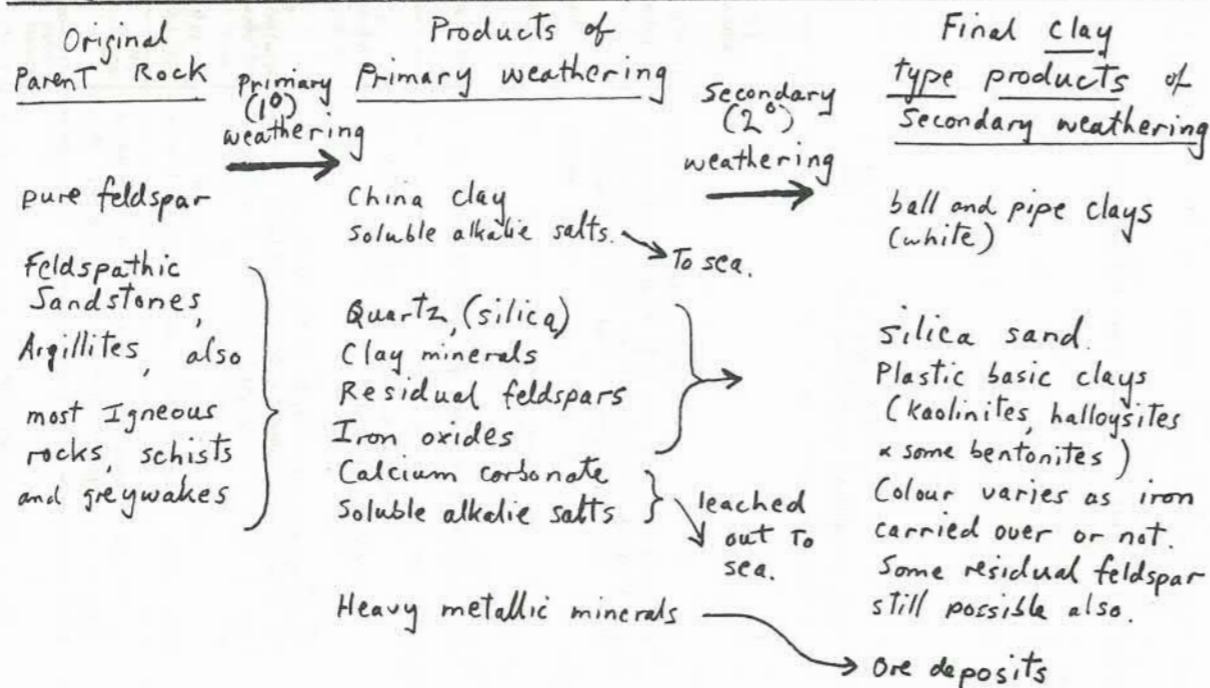 Original
Parent Rock
Primary
(1°)
weathering
Products of
Primary weathering
Secondary
(2°)
weathering
Final clay
type products of
Secondary weathering
pure feldspar
China clay
soluble alkalie salts.
To sea.
ball and pipe clays
(white)
Feldspathic
Sandstones,
Argillites, also
most Igneous
rocks, schists
and greywakes
Quartz, (silica)
Clay minerals
Residual feldspars
Iron oxides
Calcium carbonate
Soluble alkalie salts
leached
out to
sea.
Heavy metallic minerals
silica sand.
Plastic basic clays
(kaolinites, halloysites
& some bentonites)
Colour varies as iron
carried over or not.
Some residual feldspar
still possible also.
Ore deposits